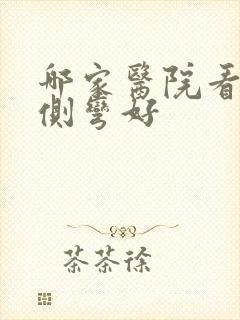 哪家醫院看
側彎好
茶茶徐